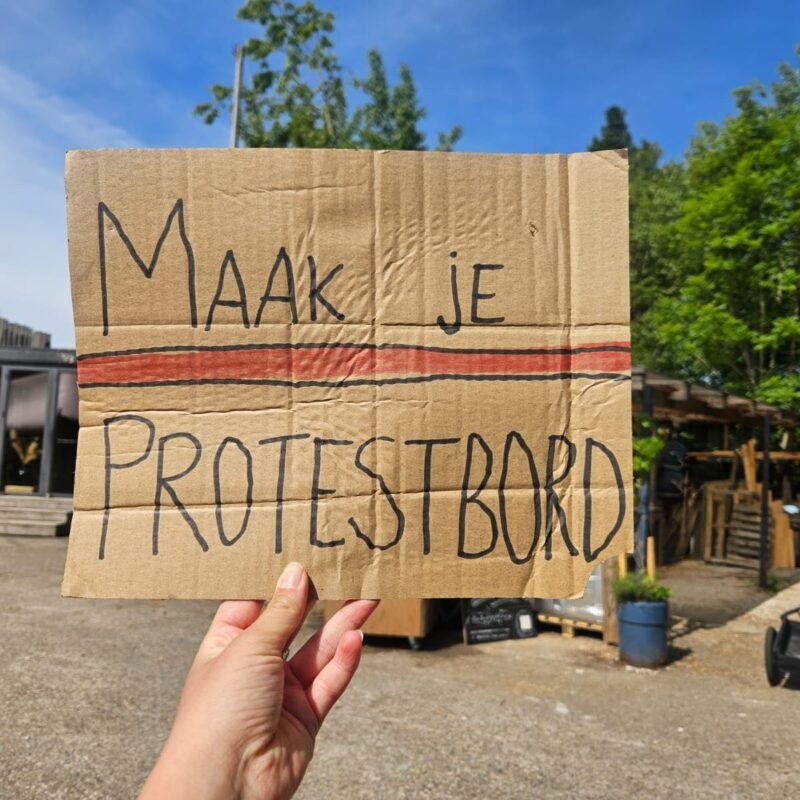 Maak je
PROTESTBORD